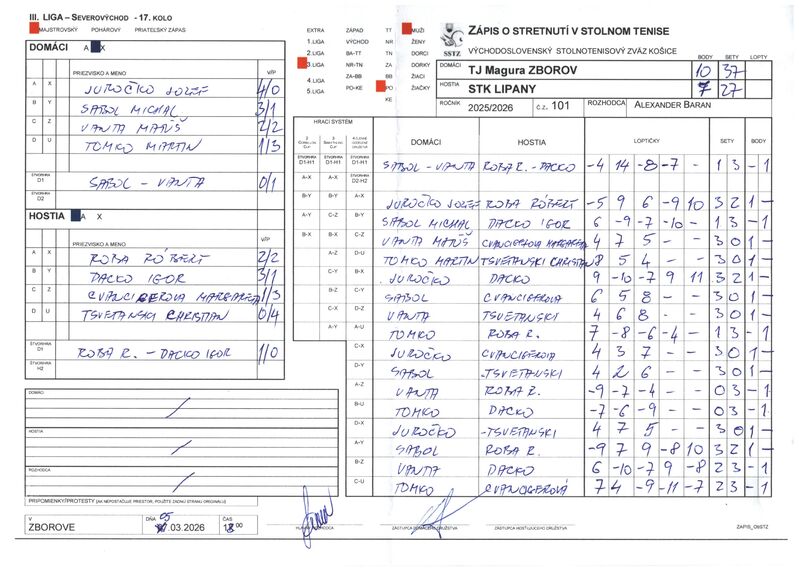 III. LIGA – SEVEROVÝCHOD - 17. KOLO
MAJSTROVSKÝ POHÁROVÝ PRIATEĽSKÝ ZÁPAS
EXTRA ZÁPAD TT MUŽI
1.LIGA VÝCHOD NR ŽENY
2.LIGA BA-TT TN DORCI
3.LIGA NR-TN ZA DORKY
4.LIGA ZA-BB BB ŽIACI
5.LIGA PO-KE PO ŽIAČKY
KE
SSTZ
ZÁPIS O STRETNUTÍ V STOLNOM TENISE
VÝCHODOSLOVENSKÝ STOLNOTENISOVÝ ZVÄZ KOŠICE
BODY SETY LOPTY
DOMÁCI TJ Magura ZBOROV 10 37
HOSTIA STK LIPANY 7 27
ROČNÍK 2025/2026 č.z. 101 ROZHODCA ALEXANDER BARAN
DOMÁCI A X
PRIEZVISKO A MENO V/P
A X JUROČKO JOZEF 4/0
B Y SABOL MICHAL 3/1
C Z VANTA MATÚŠ 2/2
D U TOMKO MARTIN 1/3
ŠTVORHRA D1 SABOL - VANTA 0/1
ŠTVORHRA D2
HOSTIA A X
PRIEZVISKO A MENO V/P
A X ROBA RÓBERT 2/2
B Y DACKO IGOR 3/1
C Z CVANCIGEROVA MARGARETA 1/3
D U TSVETANSKI CHRISTIAN 0/4
ŠTVORHRA D1 ROBA R. - DACKO IGOR 1/0
ŠTVORHRA H2
DOMÁCI
HOSTIA
ROZHODCA
PRIPOMIENKY/PROTESTY (AK NEPOSTAČUJE PRIESTOR, POUŽITE ZADNÚ STRANU ORIGINÁLU)
HRACÍ SYSTÉM
DOMÁCI HOSTIA LOPTIČKY SETY BODY
SABOL - VANTA ROBA R. - DACKO -4 14 -8 -7 - 1 3 - 1
A-X B-Y A-X JUROČKO JOZEF ROBA RÓBERT -5 9 6 -9 10 3 2 1 -
A-Y C-Z B-Y SABOL MICHAL DACKO IGOR 6 -9 -7 -10 - 1 3 - 1
B-X B-X C-Z VANTA MATÚŠ CVANCIGEROVA MARGARETA 4 7 5 - - 3 0 1 -
A-Z D-U TOMKO MARTIN TSVETANSKI CHRISTIAN 8 5 4 - - 3 0 1 -
C-Y B-X JUROČKO DACKO 9 -10 -7 9 11 3 2 1 -
B-Z C-Y SABOL CVANCIGEROVA 6 5 8 - - 3 0 1 -
C-X D-Z VANTA TSVETANSKI 4 6 8 - - 3 0 1 -
A-Y A-U TOMKO ROBA R. 7 -8 -6 -4 - 1 3 - 1
C-X JUROČKO CVANCIGEROVA 4 3 7 - - 3 0 1 -
D-Y SABOL TSVETANSKI 4 2 6 - - 3 0 1 -
A-Z VANTA ROBA R. -9 -7 -4 - - 0 3 - 1
B-U TOMKO DACKO -7 -6 -9 - - 0 3 - 1
D-X JUROČKO TSVETANSKI 4 7 5 - - 3 0 1 -
A-Y SABOL ROBA R. -9 7 9 -8 10 3 2 1 -
B-Z VANTA DACKO 6 -10 -7 9 -8 2 3 - 1
C-U TOMKO CVANCIGEROVÁ 7 4 -9 -11 -7 2 3 - 1
V DŇA ČAS
ZBOROVE .03.2026
ZÁSTUPCA DOMÁCEHO DRUŽSTVA ZÁSTUPCA HOSŤUJÚCEHO DRUŽSTVA ZAPIS_ObSTZ